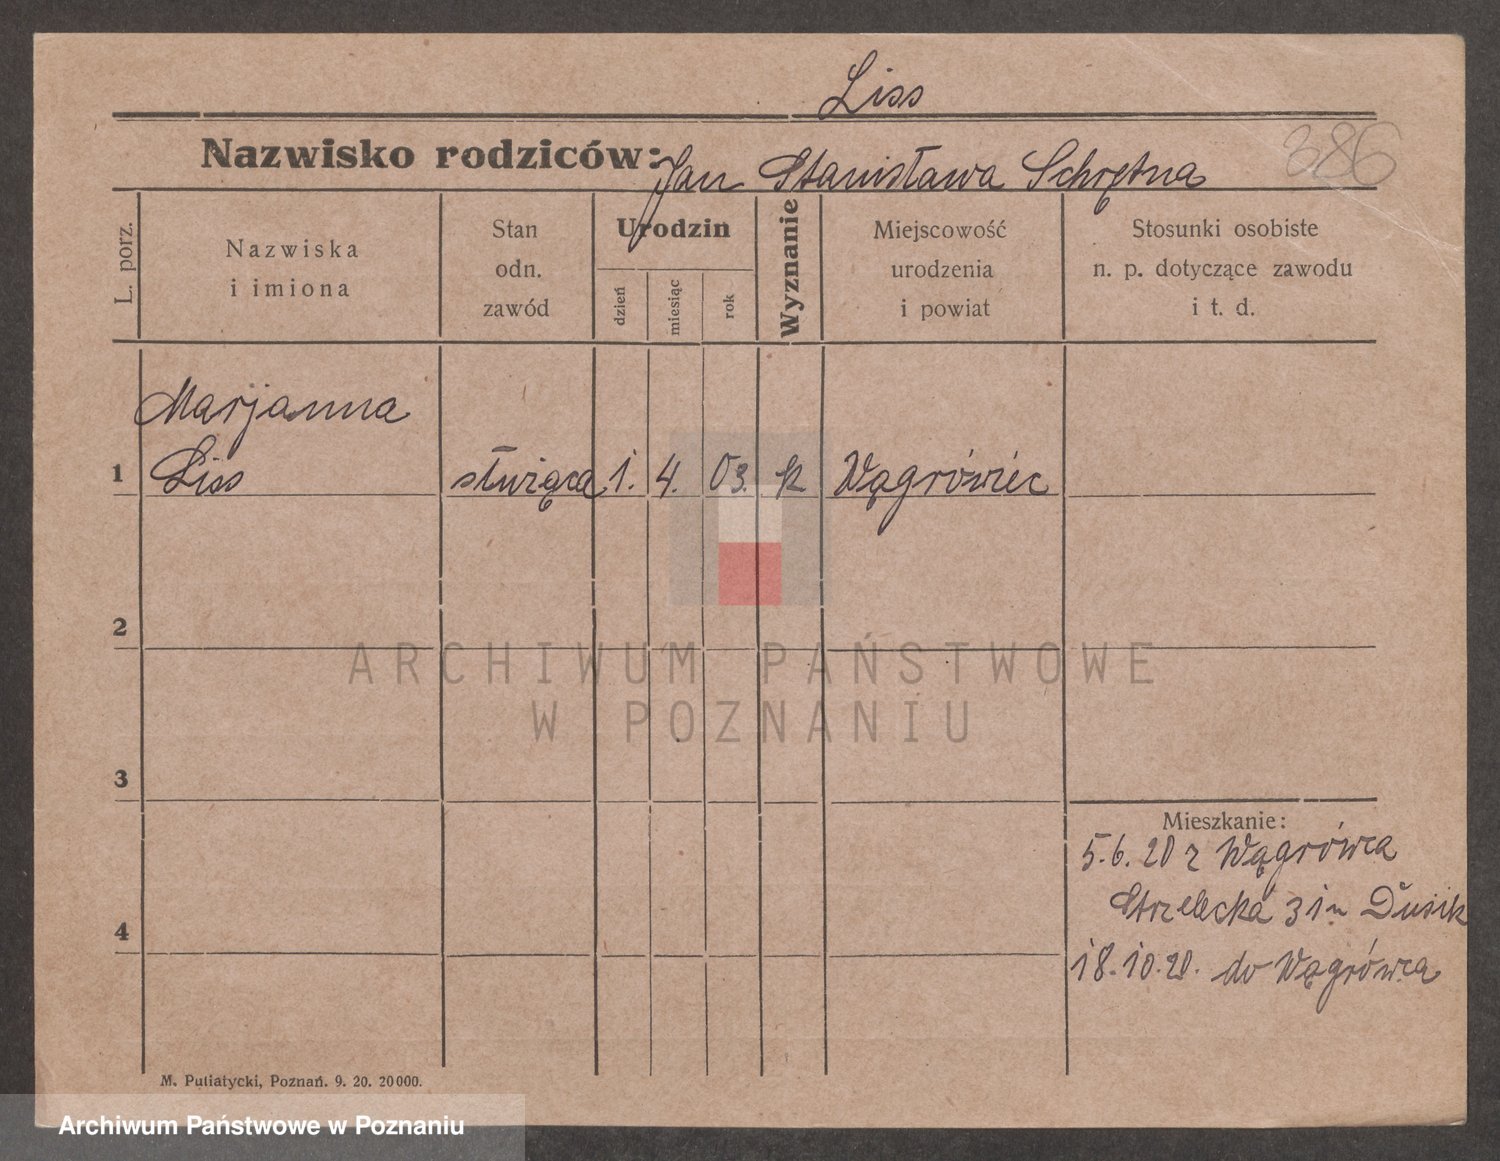 Liss
386
Nazwisko rodziców: Jan Stanisława Schrętna
L. porz.
Nazwiska
i imiona
Stan
odn.
zawód
Urodzin
dzień
miesiąc
rok
Wyznanie
Miejscowość
urodzenia
i powiat
Stosunki osobiste
n. p. dotyczące zawodu
i t. d.
Marjanna
1 Liss służąca 1. 4. 03. k Wągrówiec
2
ARCHIWUM PAŃSTWOWE
W POZNANIU
3
Mieszkanie:
5.6.20 z Wągrówca
Strzelecka 31 Dusik
4
18.10.20. do Wągrówca
M. Putiatycki, Poznań. 9. 20. 20000.
Archiwum Państwowe w Poznaniu